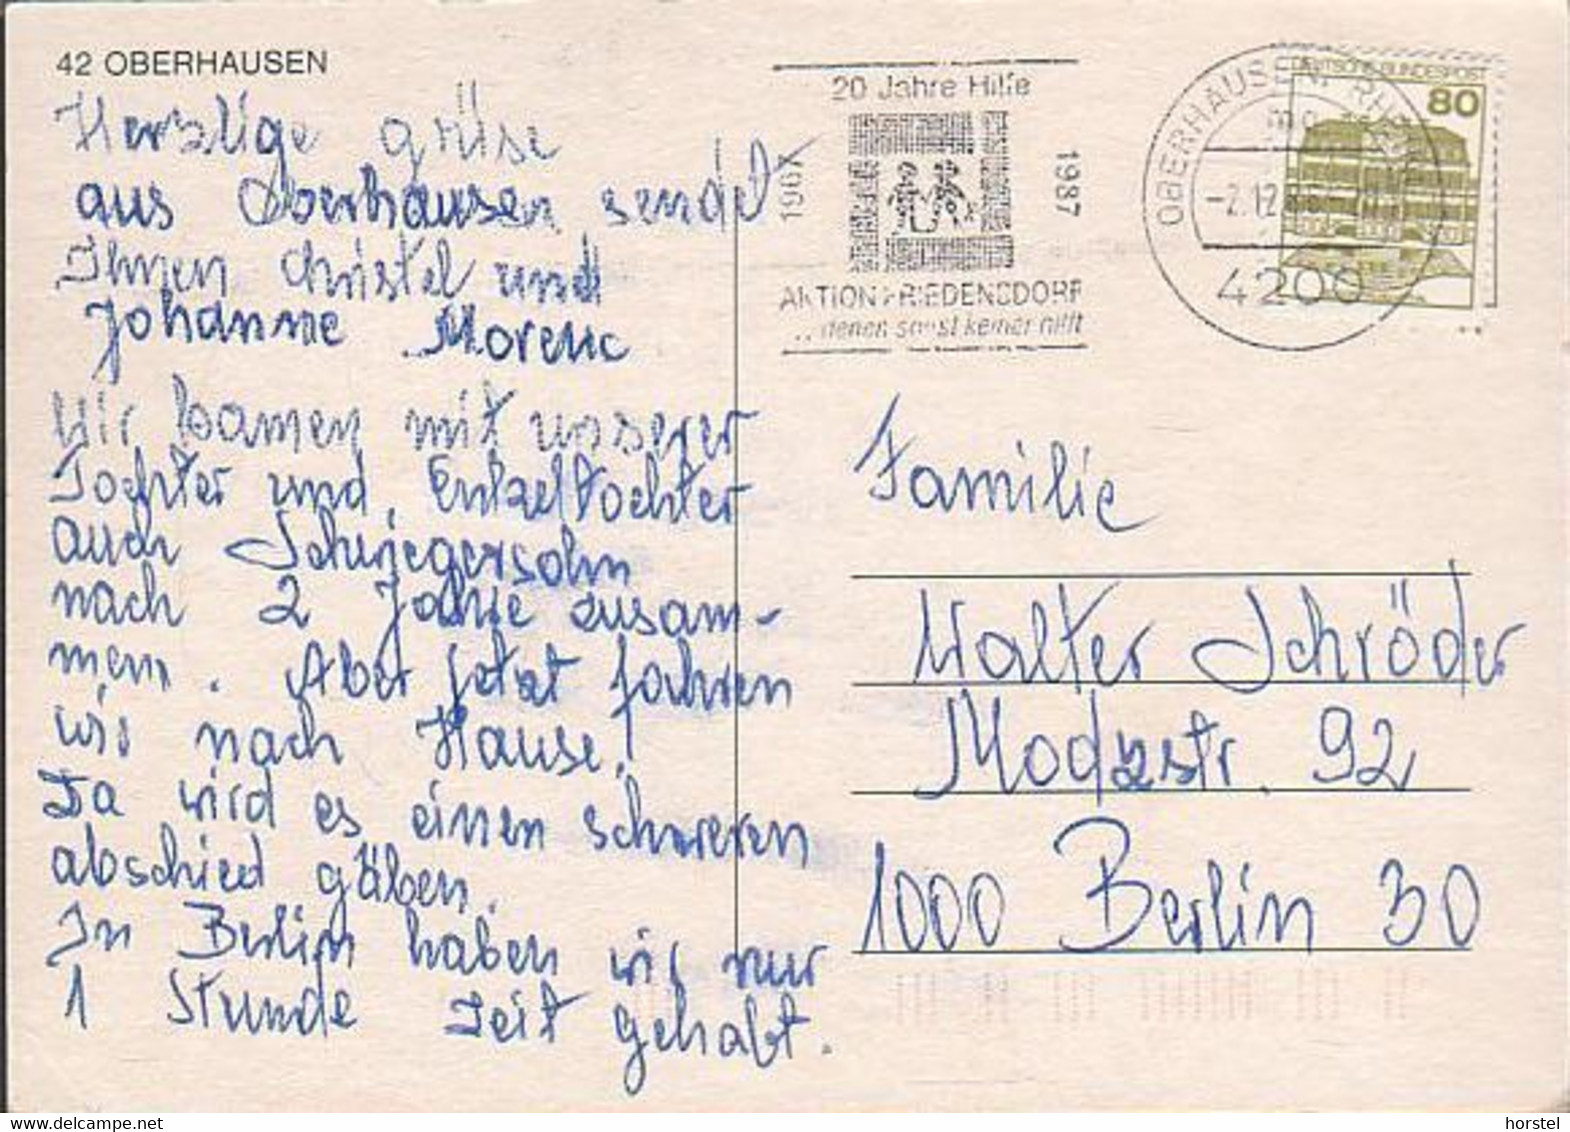 42 OBERHAUSEN
Herzlige grüse
aus Oberhausen sendet
Ihnen Christel und
Johanne Morenc
Wir kamen mit unserer
Tochter und Enkeltochter
auch Schwiegersohn
nach 2 Jahre zusam-
men. Aber jetzt fahren
wir nach Hause!
Da wird es einen schweren
abschied gäben.
In Berlin haben wir nur
1 Stunde Zeit gehabt.
20 Jahre Hilfe
1967
1987
AKTION FRIEDENSDORF
...denen sonst keiner hilft
OBERHAUSEN, RHEINL
-2.12.
4200
DEUTSCHE BUNDESPOST
80
Familie
Walter Schröder
Motzstr. 92
1000 Berlin 30
www.delcampe.net
horstel